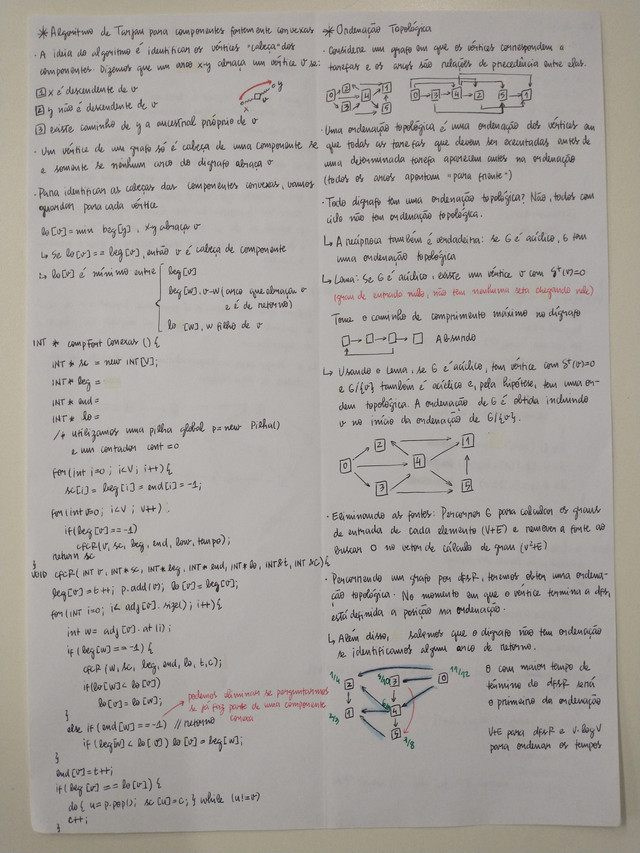 * Algoritmo de Tarjan para componentes fortemente conexas
· A ideia do algoritmo é identificar os vértices "cabeça" dos
componentes. Dizemos que um arco x-y abraça um vértice v se:
1 x é descendente de v
2 y não é descendente de v
3 existe caminho de y a ancestral próprio de v
x v y
· Um vértice de um grafo só é cabeça de uma componente se
e somente se nenhum arco do digrafo abraça v
· Para identificar as cabeças das componentes conexas, vamos
guardar para cada vértice
lo[v] = min beg[y], x-y abraça v
↳ se lo[v] == beg[v], então v é cabeça de componente
↳ lo[v] é mínimo entre
beg[v]
beg[w], v-w (arco que abraça v
e é de retorno)
lo[w], w filho de v
INT * compFortConexas () {
INT * sc = new INT[V];
INT * beg =
INT * end =
INT * lo =
/* utilizamos uma pilha global p = new Pilha()
e um contador cont = 0
for (int i=0; i<V; i++) {
sc[i] = beg[i] = end[i] = -1;
for (int v=0; i<V; v++)
if (beg[v] == -1)
cfcR(v, sc, beg, end, low, tempo);
return sc
}
VOID cfcR( INT v, INT* sc, INT* beg, INT* end, INT* lo, INT& t, INT &c) {
beg[v] = t++; p.add(v); lo[v] = beg[v];
for (int i=0; i< adj[v].size(); i++) {
int w = adj[v].at(i);
if (beg[w] == -1) {
cfcR(w, sc, beg, end, lo, t, c);
if (lo[w] < lo[v])
lo[v] = lo[w];
}
podemos eliminar se perguntarmos
se já faz parte de uma componente
conexa
else if (end[w] == -1) // retorno
if (beg[w] < lo[v]) lo[v] = beg[w];
}
end[v] = t++;
if (beg[v] == lo[v]) {
do { u = p.pop(); sc[u] = c; } while (u != v)
c++;
}
* Ordenação Topológica
· Considere um grafo em que os vértices correspondem a
tarefas e os arcos são relações de precedência entre elas.
0 2 1 4 3 5
0 3 4 2 5 1
· Uma ordenação topológica é uma ordenação dos vértices em
que todas as tarefas que devem ser executadas antes de
uma determinada tarefa aparecem antes na ordenação
(todos os arcos apontam "para frente")
· Todo digrafo tem uma ordenação topológica? Não, todos com
ciclo não tem ordenação topológica.
↳ A recíproca também é verdadeira: se G é acíclico, G tem
uma ordenação topológica
↳ Lema: Se G é acíclico, existe um vértice v com δ⁺(v)=0
(grau de entrada nulo, não tem nenhuma seta chegando nele)
Tome o caminho de comprimento máximo no digrafo
Absurdo
↳ Usando o Lema, se G é acíclico, tem vértice com δ⁺(v)=0
e G/{v} também é acíclico e, pela hipótese, tem uma or-
dem topológica. A ordenação de G é obtida incluindo
v no início da ordenação de G/{v}.
0 2 1 4 3 5
· Eliminando as fontes: Percorrer G para calcular os graus
de entrada de cada elemento (V+E) e remover a fonte ao
buscar 0 no vetor de cálculo de grau (V²+E)
· Percorrendo um grafo por dfsR, teremos obter uma ordena-
ção topológica. No momento em que o vértice termina a dfs,
está definida a posição na ordenação.
↳ Além disso, sabemos que o digrafo não tem ordenação
se identificamos algum arco de retorno.
1/4 2 3 0 11/12
2/3 1 4
5 7/8
O com maior tempo de
término do dfsR será
o primeiro da ordenação
V+E para dfsR e V·logV
para ordenar os tempos